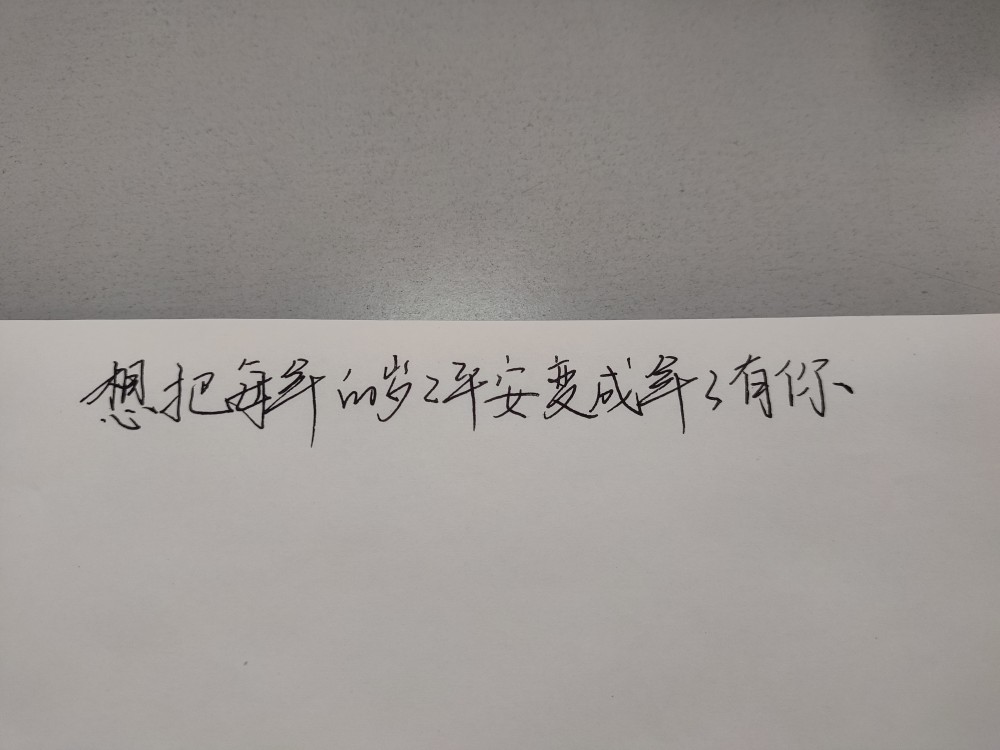 想把每年的岁々平安变成年々有你、